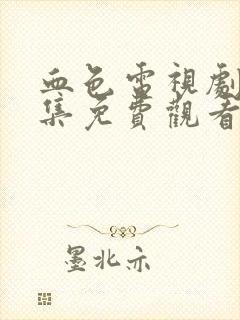 血色雷視劇
集免費觀看
墨北亦